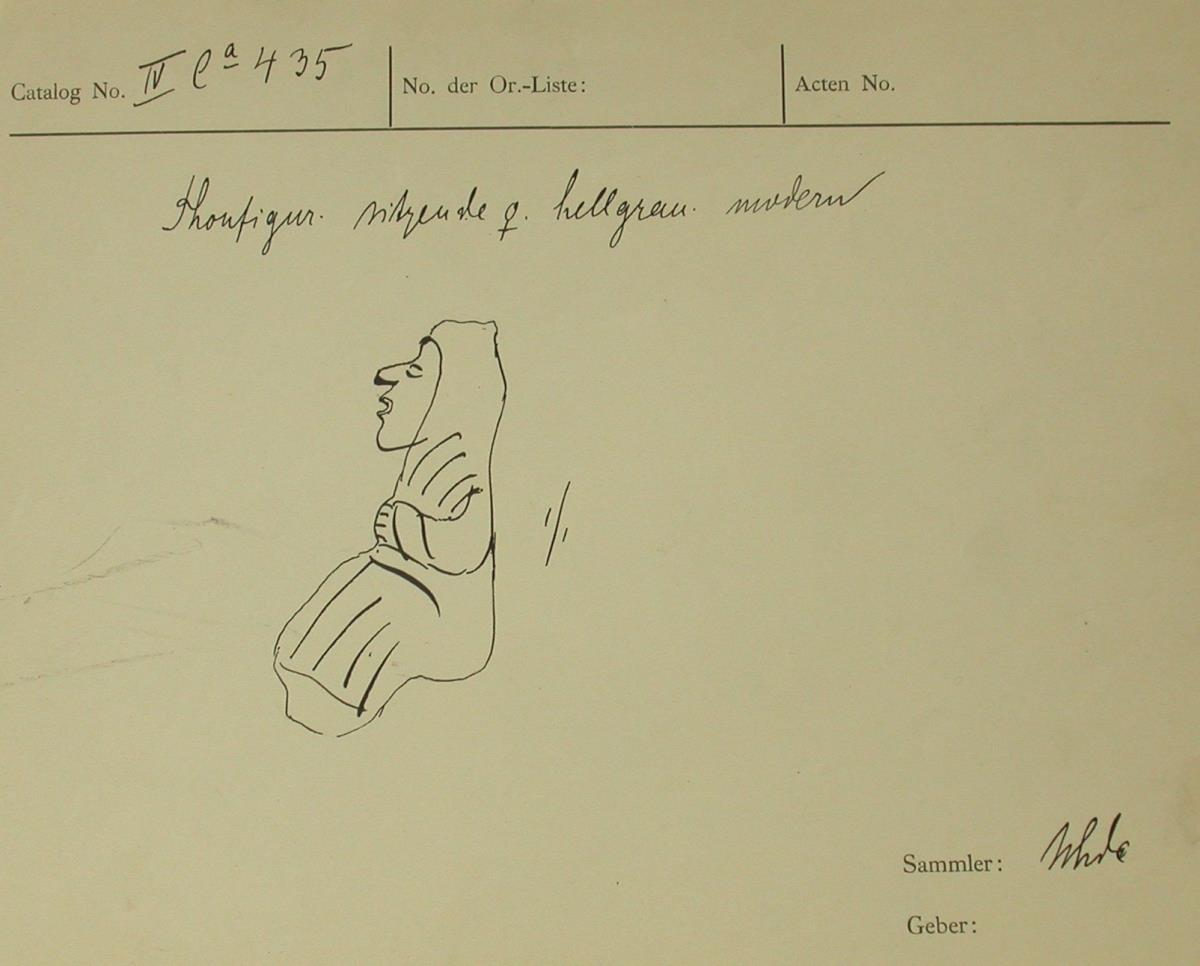 Catalog No. IV Ca 435 No. der Or.-Liste: Acten No.
Thonfigur. sitzende ♀. hellgrau. modern
1/1
Sammler: Uhde
Geber: